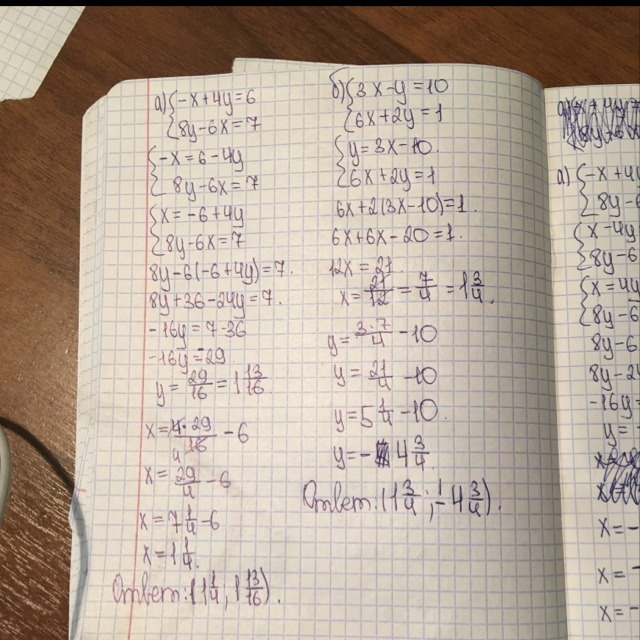 а) {-x+4y=6
{8y-6x=7
{-x=6-4y
{8y-6x=7
{x=-6+4y
{8y-6x=7
8y-6(-6+4y)=7.
8y+36-24y=7.
-16y=7-36
-16y=-29
y=29/16=1 13/16
x=4·29/16-6
x=29/4-6
x=7 1/4-6
x=1 1/4.
Ответ: (1 1/4, 1 13/16).
б) {3x-y=10
{6x+2y=1
{y=3x-10.
{6x+2y=1
6x+2(3x-10)=1.
6x+6x-20=1.
12x=21.
x=21/12=7/4=1 3/4.
y=3·7/4-10
y=21/4-10
y=5 1/4-10.
y=-4 3/4.
Ответ: (1 3/4; -4 3/4).
а) {-x+4y
{8y-6
{x-4y
{8y-6
{x=4y
{8y-6
8y-6
8y-24
-16y=
y=
x=-
x=-
x=-